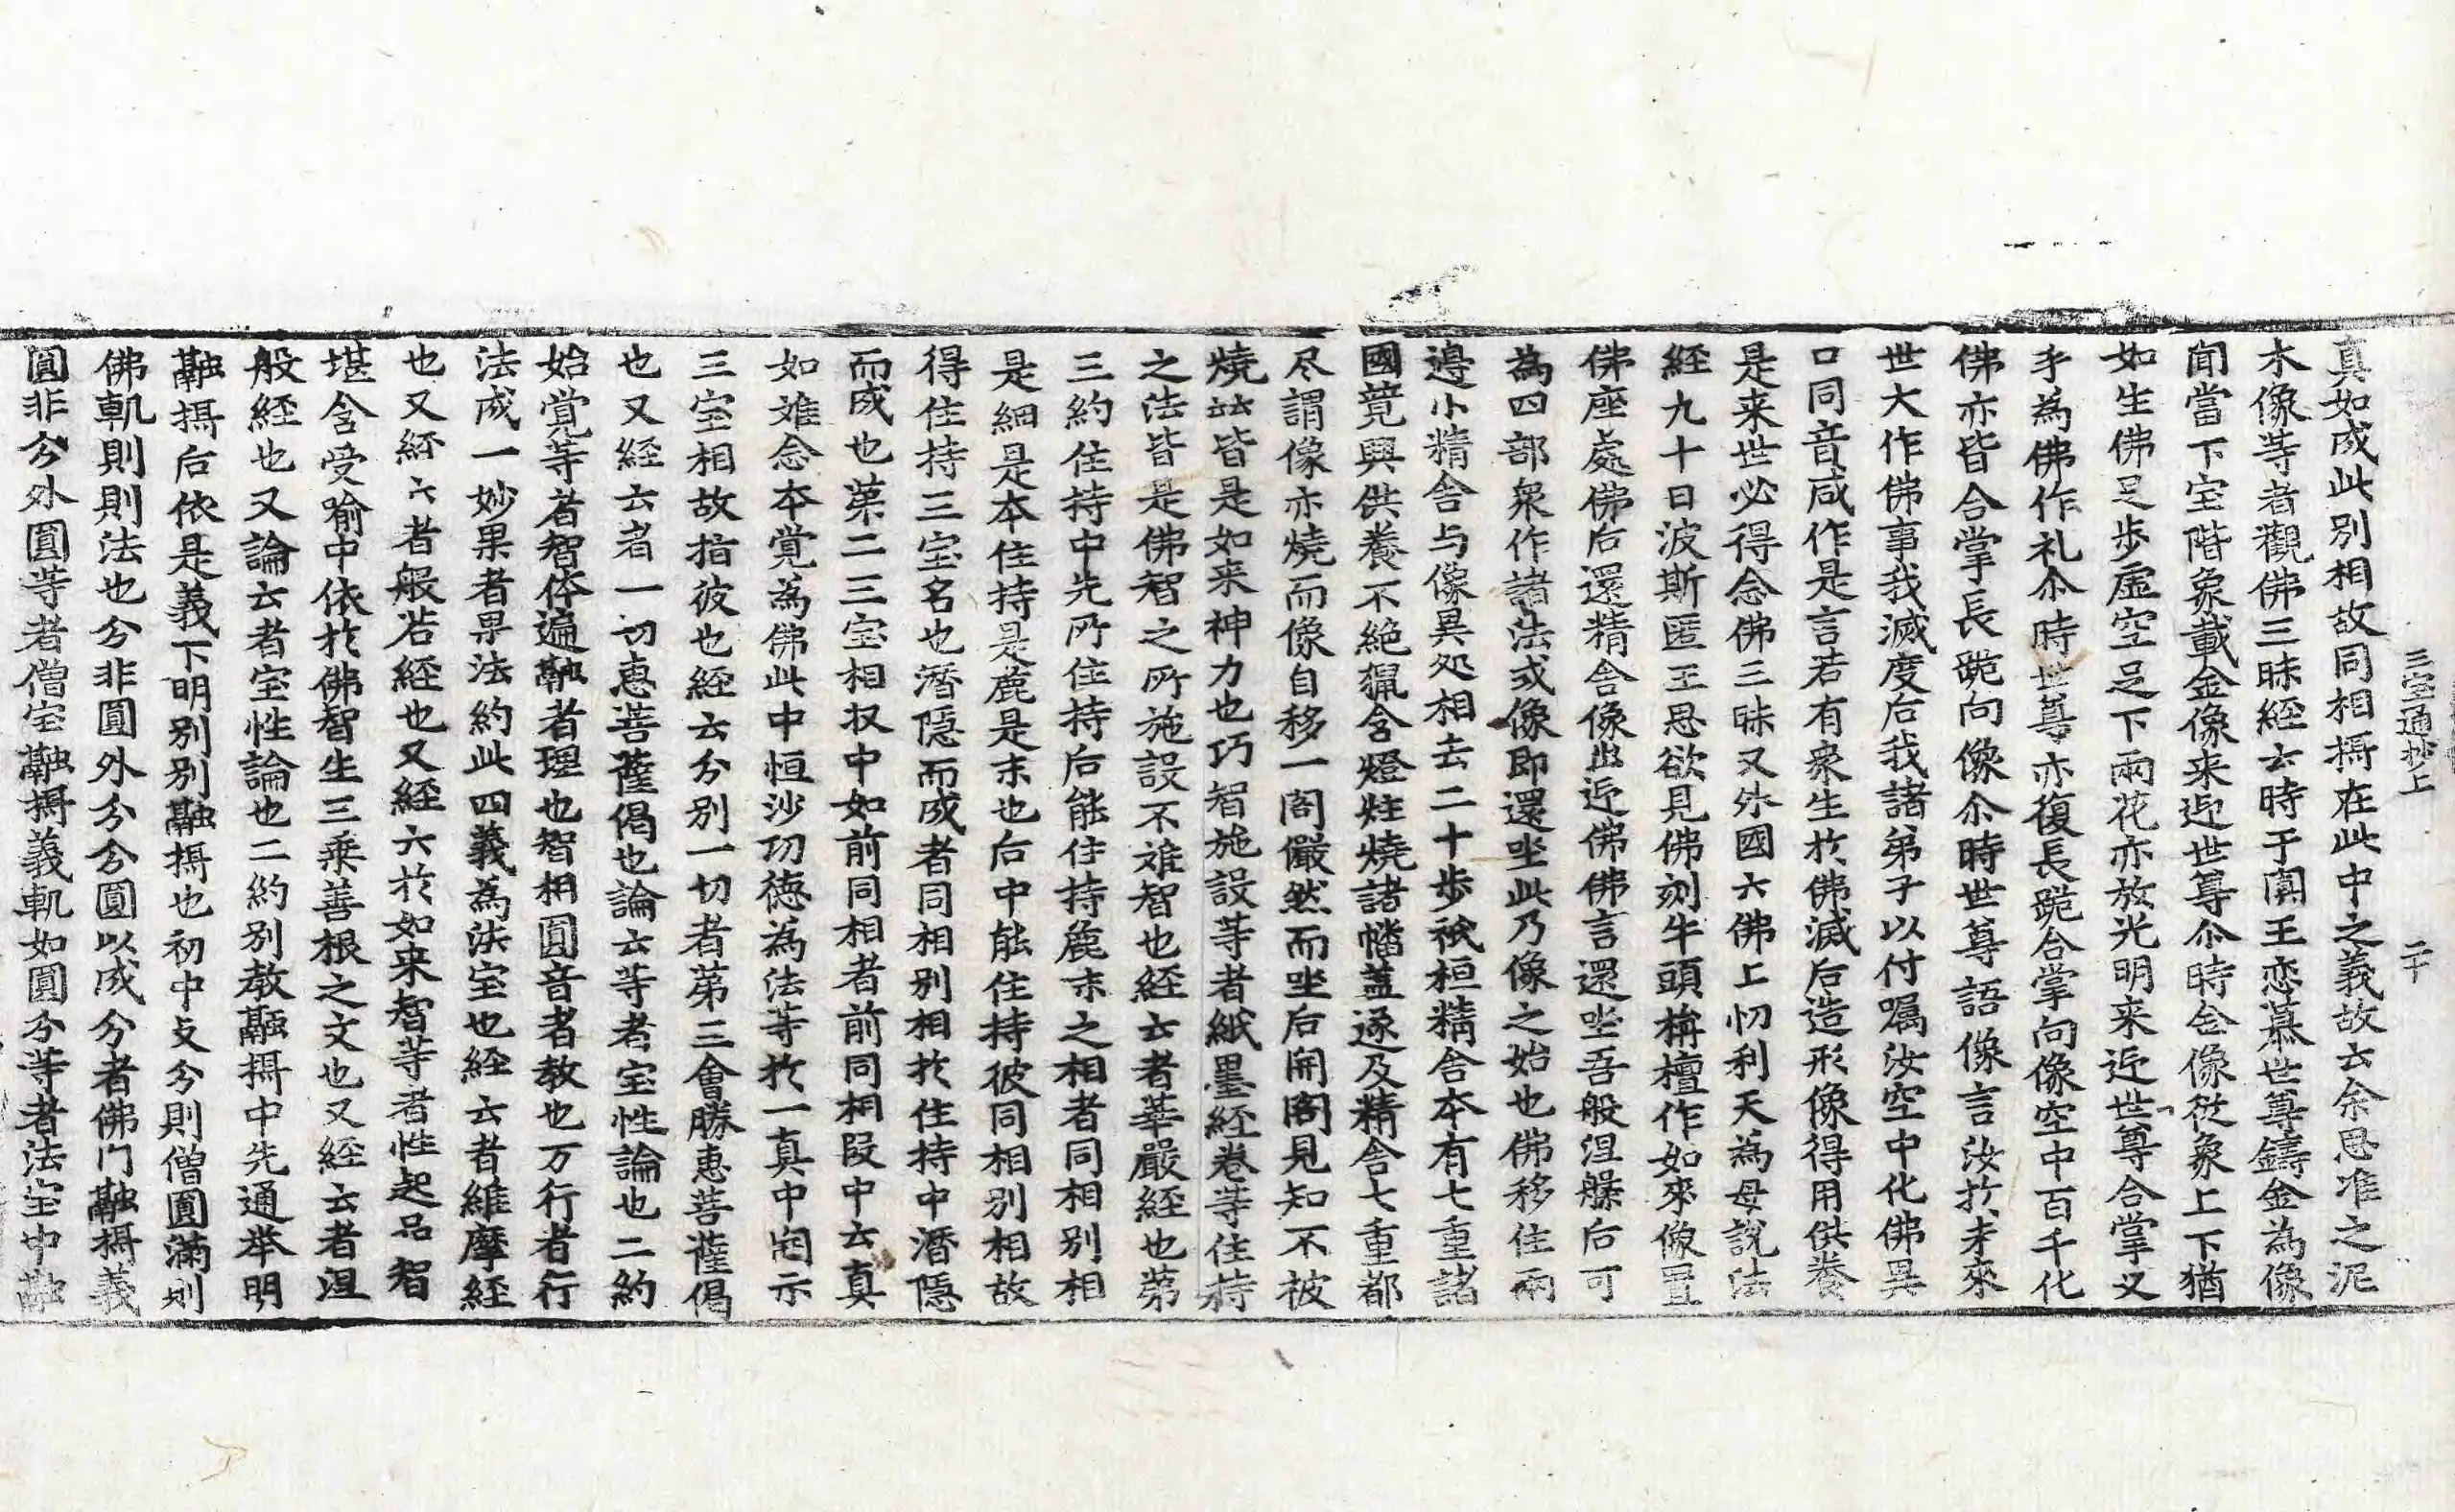 三宝通抄上　二十
真如成此别相故同相攝在此中之義故云余思准之泥
木像䓁者觀佛三昧經云時于闐王恋慕世尊鑄金為像
聞當下宝階象載金像来迎世尊尒時金像從象上下猶
如生佛足步虛空足下雨花亦放光明来近世尊合掌叉
手為佛作礼尒時世尊亦復長跪合掌向像空中百千化
佛亦皆合掌長跪向像尒時世尊語像言汝扵未來
世大作佛事我滅度后我諸弟子以付嘱汝空中化佛異
口同音咸作是言若有衆生扵佛滅后造形像得用供養
是来世必得念佛三昧又外國六佛上忉利天為母說法
經九十日波斯匿王思欲見佛刻牛頭栴檀作如來像置
佛座處佛后還精舍像出近佛佛言還坐吾般涅槃后可
為四部衆作諸法或像即還坐此乃像之始也佛移住兩
邉小精舍与像異処相去二十步衹桓精舍本有七重諸
國競興供養不絶猟含燈炷燒諸幡蓋逐及精舍七重都
尽謂像亦燒而像自移一閣儼然而坐后開閣見知不被
燒云云皆是如来神力也巧智施設䓁者紙墨經卷等住持
之法皆是佛智之所施設不难智也經云者華嚴經也苐
三約住持中先所住持后能住持麁末之相者同相别相
是細是本住持是麁是末也后中能住持彼同相别相故
得住持三宝名也潛隱而成者同相别相扵住持中潛隱
而成也苐二三宝相収中如前同相者前同相段中云真
如难念本覺為佛此中恒沙功德為法等扵一真中囱示
三宝相故指彼也經云分别一切者苐三會勝惠菩薩偈
也又經云者一切惠菩薩偈也論云等者宝性論也二約
始覚等者智体遍融者理也智相圓音者教也万行者行
法成一妙果者果法約此四義為法宝也經云者維摩經
也又經云者般若經也又經六扵如来智等者性起品智
堪含受喻中依扵佛智生三乗善根之文也又經云者涅
般經也又論云者宝性論也二約别教融攝中先通举明
融攝后依是義下明别别融攝也初中攴分則僧圓滿則
佛軌則則法也分非圓外分分圓以成分者佛門融攝義
圓非分外圓䓁者僧宝融攝義軌如圓分等者法宝中融